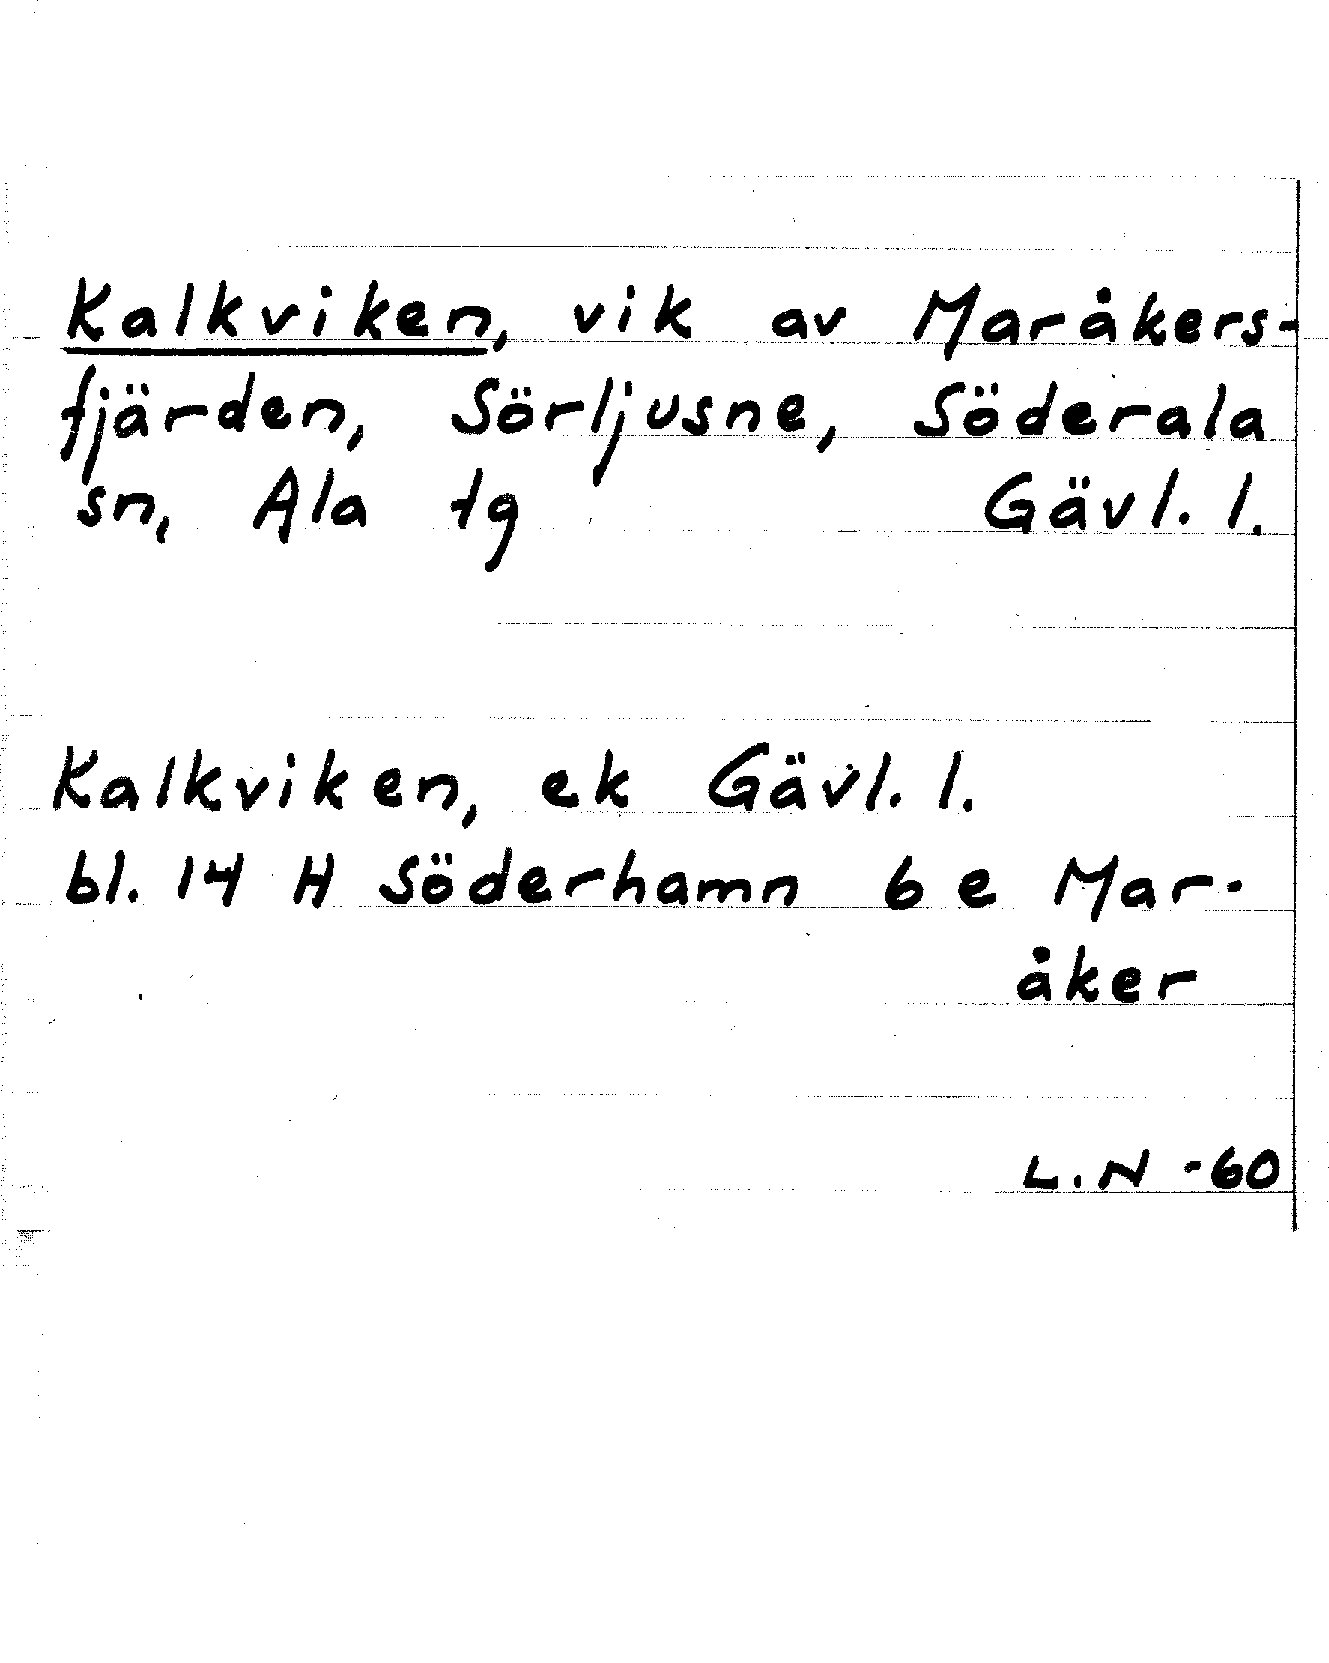 Kalkviken, vik av Maråkers-
fjärden, Sörljusne, Söderala
sn, Ala tg Gävl. l.
Kalkviken, ek Gävl. l.
bl. 14 H Söderhamn 6 e Mar-
åker
L.N -60